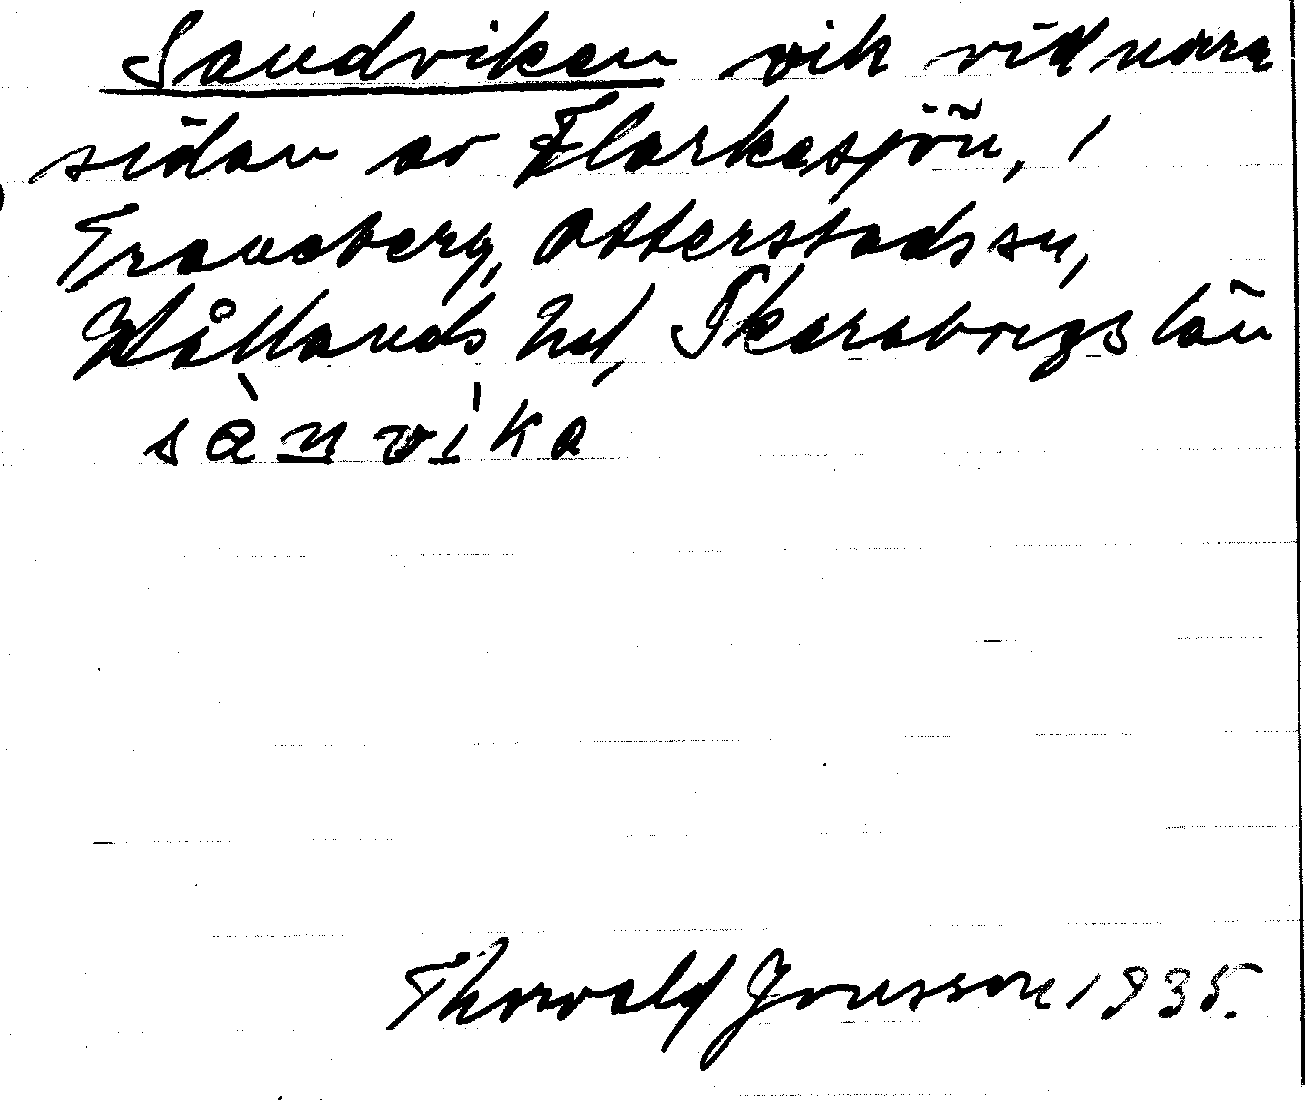 Sandviken vik vid norra
sidan av Flarkesjön, i
Traneberg, Otterstads sn,
Kållands hd, Skaraborgs län
sànvíka
Thorvald Jonsson 1935.